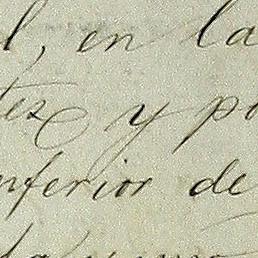 l, en la
tez y po
nferior de